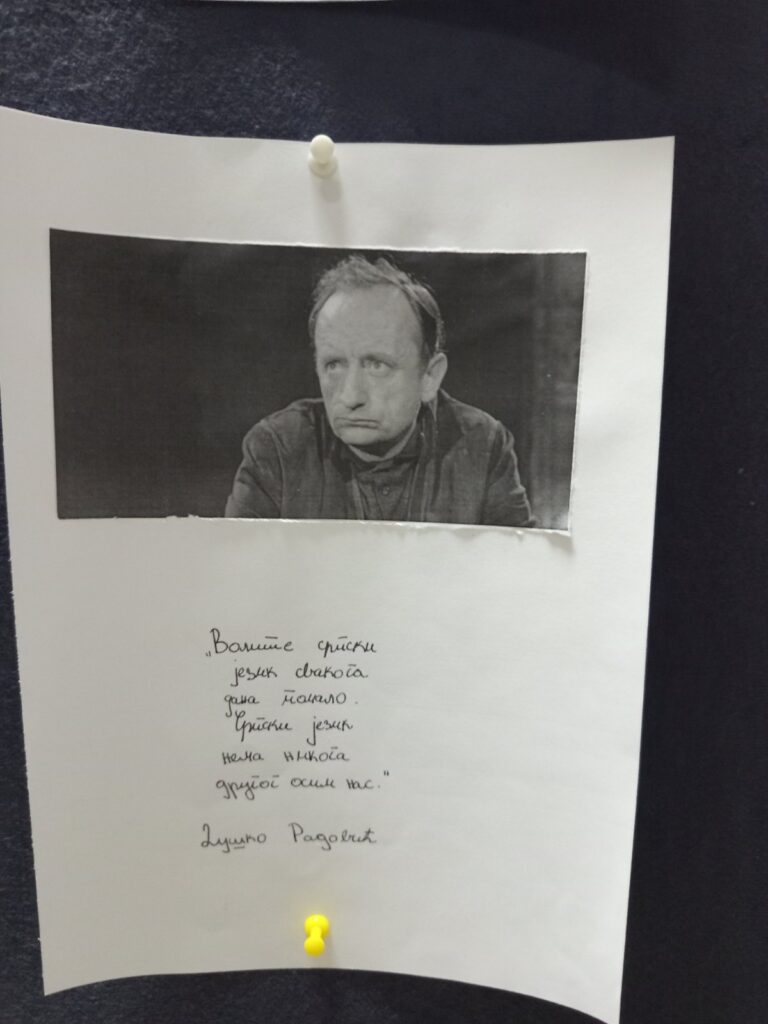 „Волите српски
језик свакога
дана помало.
Српски језик
нема никога
другог осим нас."
Душко Радовић